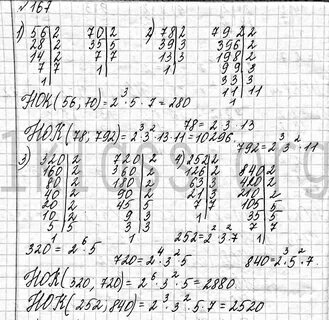 №167
1) 56|2 70|2 2) 78|2 792|2
28|2 35|5 39|3 396|2
14|2 7|7 13|3 198|2
7|7 1| 1| 99|3
1| 33|3
11|11
1
НОК(56, 70)=2³·5·7=280
78=2·3·13
НОК(78, 792)=2³·3²·13·11=10296.
792=2³·3²·11
3) 320|2 720|2 4) 252|2 840|2
160|2 360|2 126|2 420|2
80|2 180|2 63|3 210|2
40|2 90|2 21|3 105|5
20|2 45|5 7|7 35|5
10|2 9|3 1| 7|7
5|5 3|3 1|
1| 1|
320=2⁶·5 252=2²·3²·7
720=2⁴·3²·5 840=2³·5·7
НОК(320, 720)=2⁶·3²·5=2880
НОК(252, 840)=2³·3²·5·7=2520